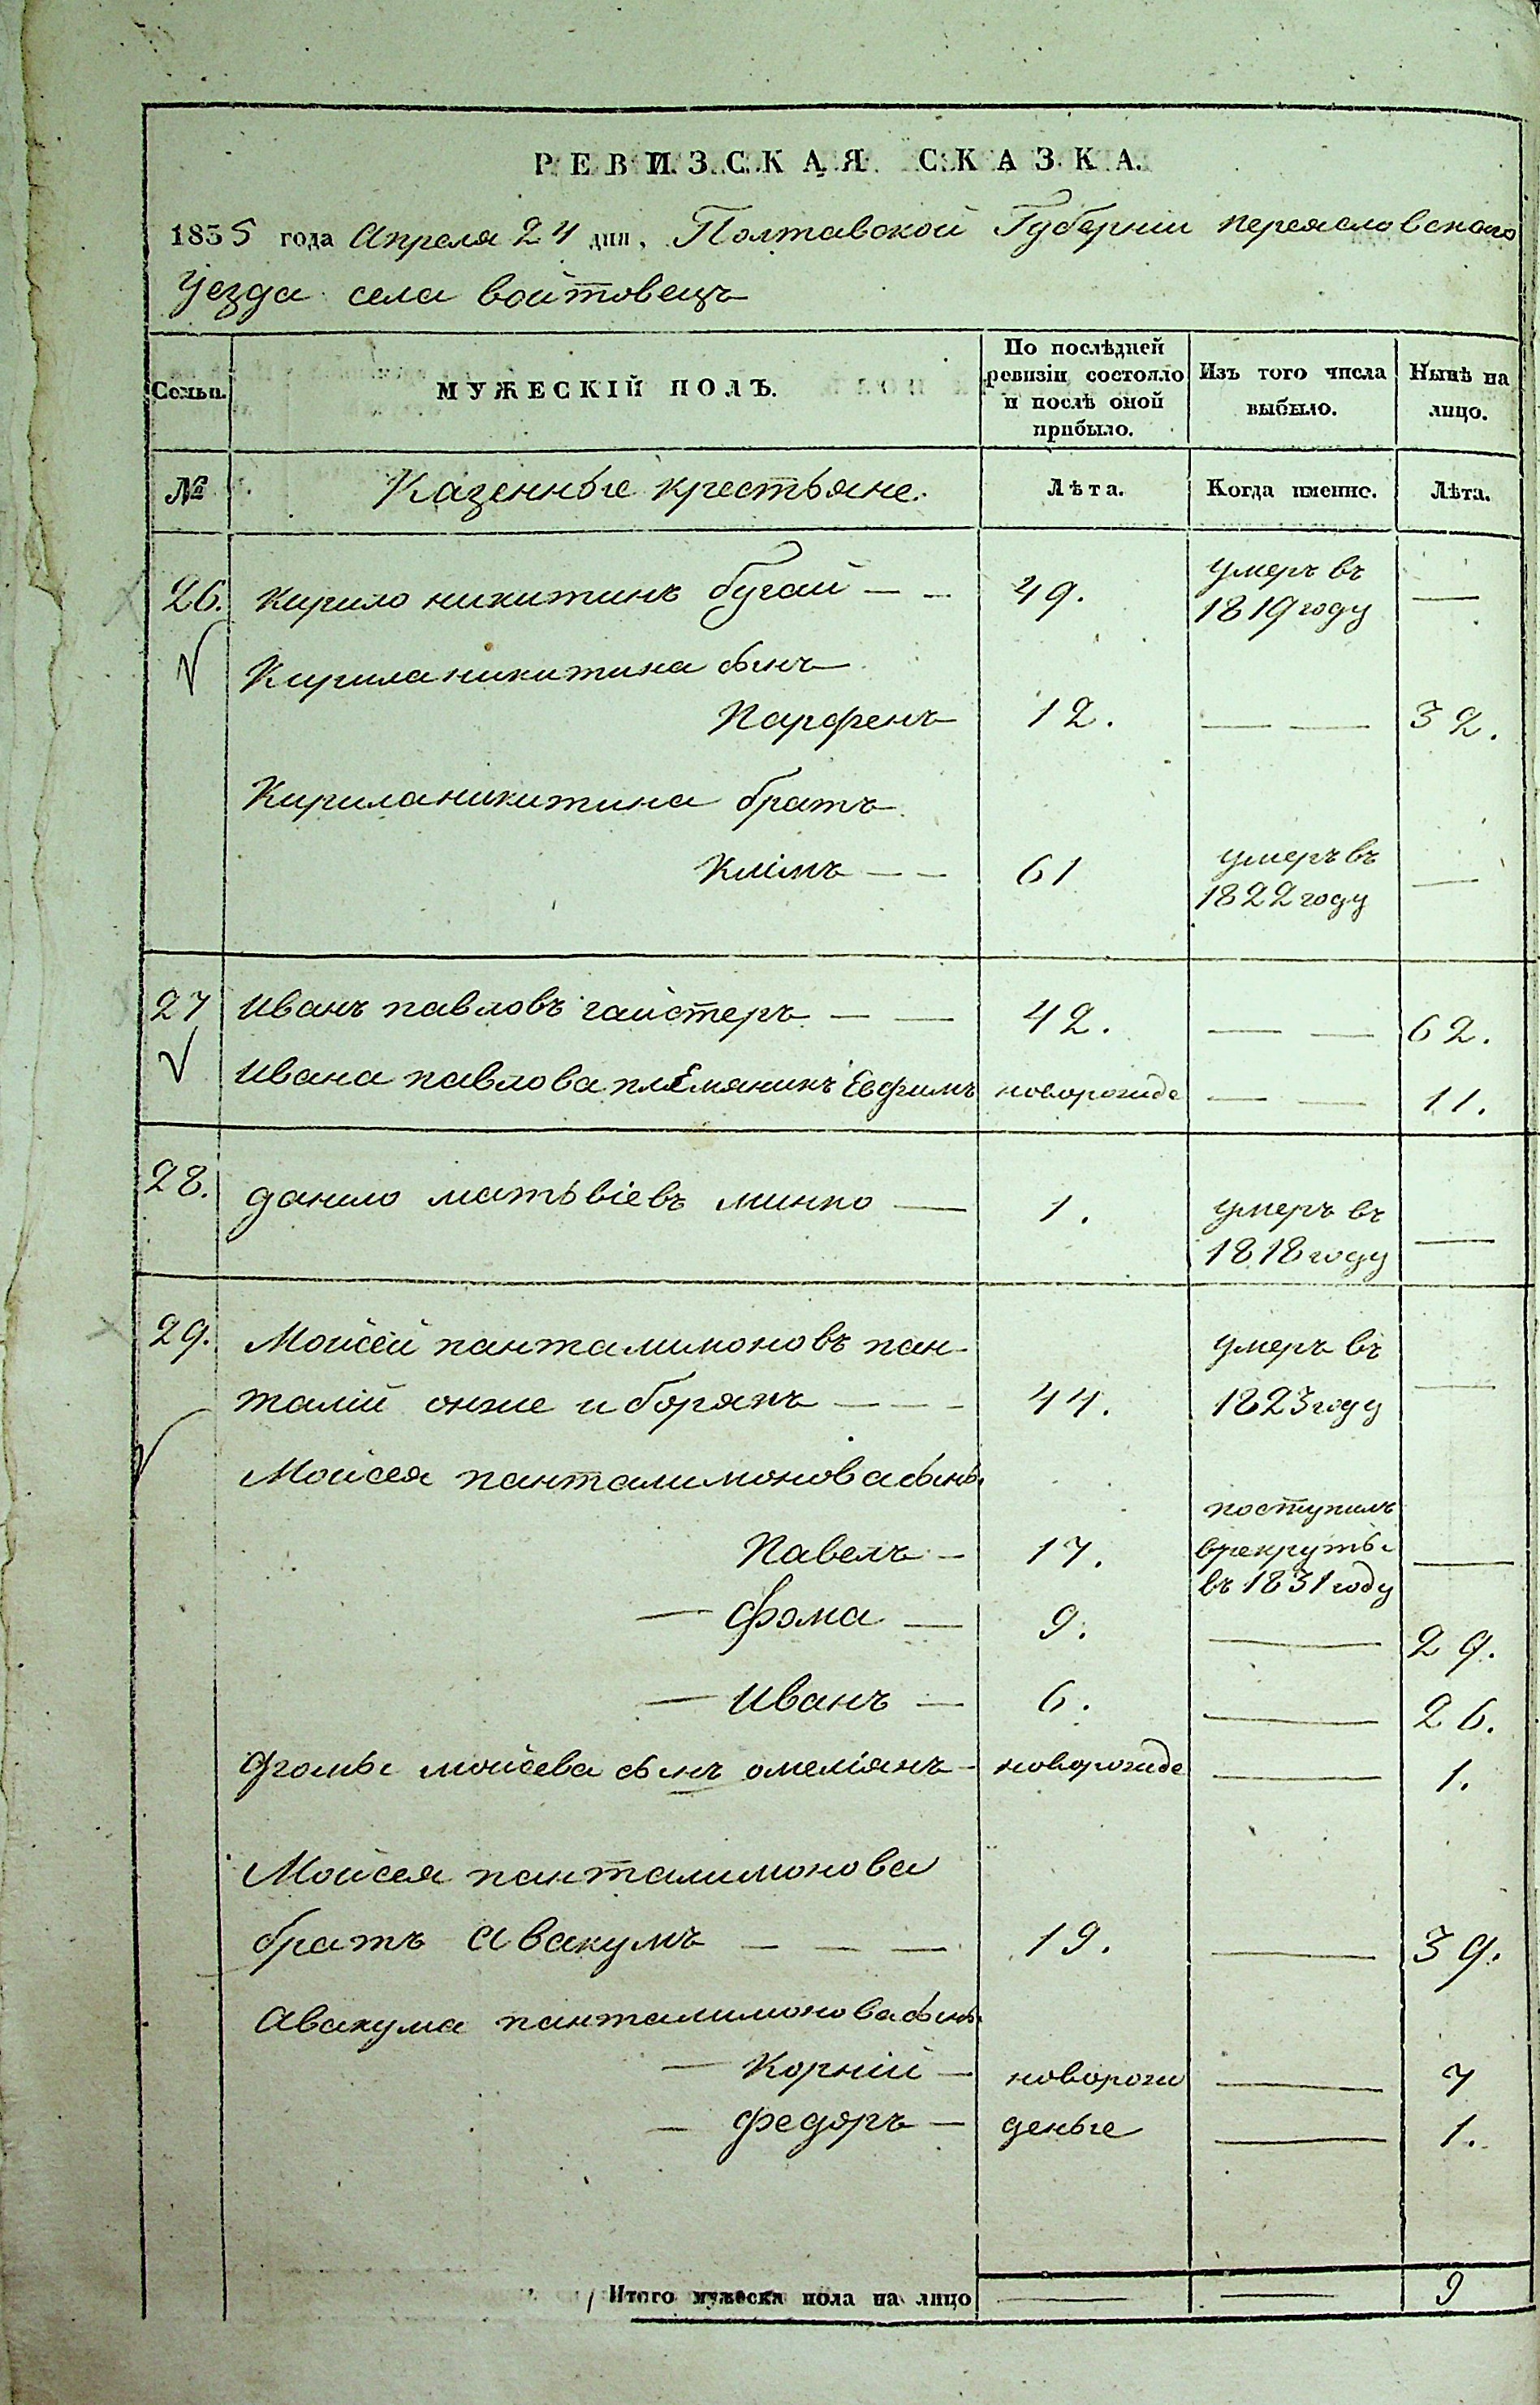 РЕВИЗСКАЯ СКАЗКА.
1835 года Апреля 24 дня, Полтавской Губернии переясловского
Уезда села войтовецъ
Семьи.
МУЖЕСКІЙ ПОЛЪ.
По послѣдней ревизіи состояло и послѣ оной прибыло.
Изъ того числа выбыло.
Нынѣ на лицо.
№ Казенные крестьяне. Лѣта. Когда именно. Лѣта.
26. Кирило никитинъ бугай — — 49. умеръ въ 1819 году —
Кирила никитина сынъ
Парфенъ 12. — — 32.
Кирила никитина братъ
Клімъ — — 61 умеръ въ 1822 году —
27 Иванъ павловъ гайстеръ — — 42. — — 62.
Ивана павлова племяникъ Евфимъ новорожде — — 11.
28. данило матьвіевъ минко — 1. умеръ въ 1818 году —
29. Мойсей панталимоновъ пан-
талій онже и борякъ — — — 44. умеръ въ 1823 году —
Мойсея панталимонова сынъ
Павелъ — 17. поступилъ врекруты въ 1831 году —
— фома — 9. — 29.
— Иванъ — 6. — 26.
фомы мойсева сынъ омеліянъ — новорожде — 1.
Мойсея панталимонова
братъ Авакумъ — — — 19. — 39.
Авакума панталимонова сынъ
— Корній — новорож — 7
— федоръ — деные — 1.
Итого мужеска пола на лицо — — 9